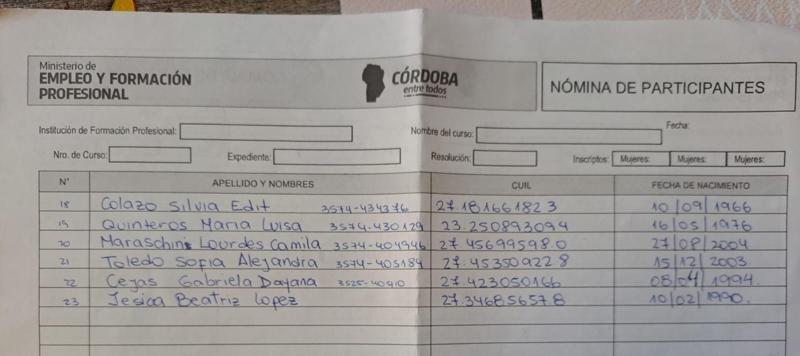 Ministerio de
EMPLEO Y FORMACIÓN
PROFESIONAL
CÓRDOBA
entre todos
NÓMINA DE PARTICIPANTES
Institución de Formación Profesional: Nombre del curso: Fecha:
Nro. de Curso: Expediente: Resolución: Inscriptos: Mujeres: Mujeres: Mujeres:
N° APELLIDO Y NOMBRES CUIL FECHA DE NACIMIENTO
18 Colazo Silvia Edit 3574-434376 27.18166182 3 10/09/1966
19 Quinteros Maria Luisa 3574-430129 23.25089309 4 16/05/1976
20 Maraschini Lourdes Camila 3574-404946 27.45699598.0 27/08/2004
21 Toledo Sofia Alejandra 3574-405184 27.45350922 8 15/12/2003
22 Cejas Gabriela Dayana 3525-40410 27.423050166 08/04/1994.
23 Jesica Beatriz Lopez 27.34685657.8 10/02/1990.